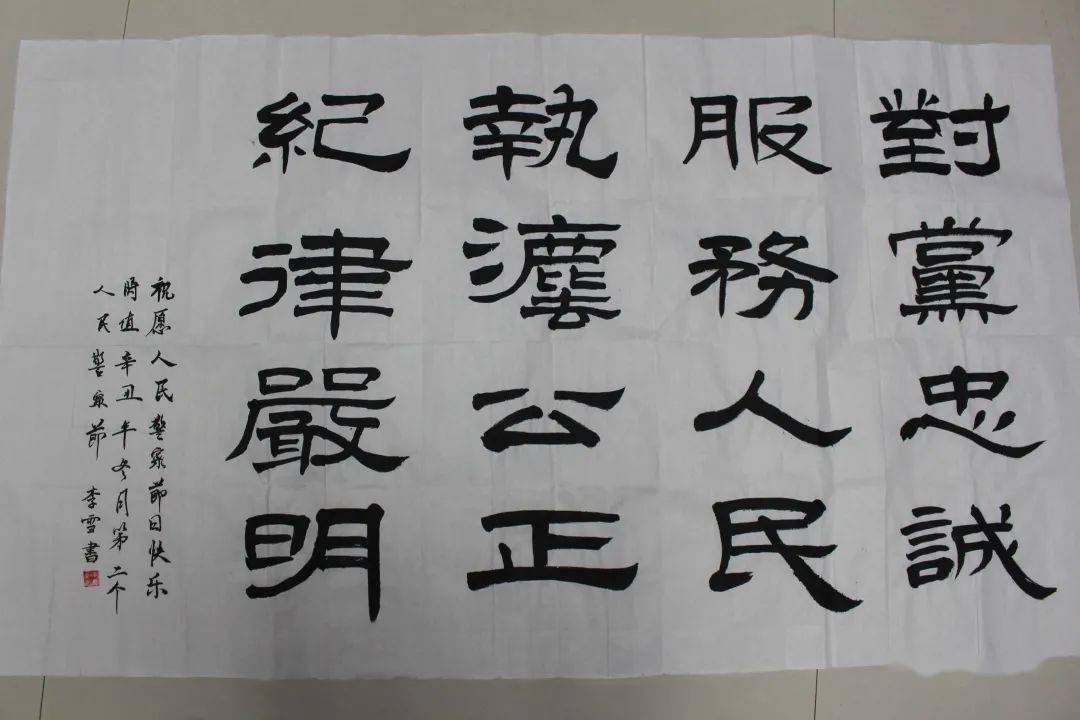 對黨忠誠
服務人民
執灋公正
紀律嚴明
祝愿人民警察節日快乐
時值辛丑年冬月第二个
人民警察節 李雪書